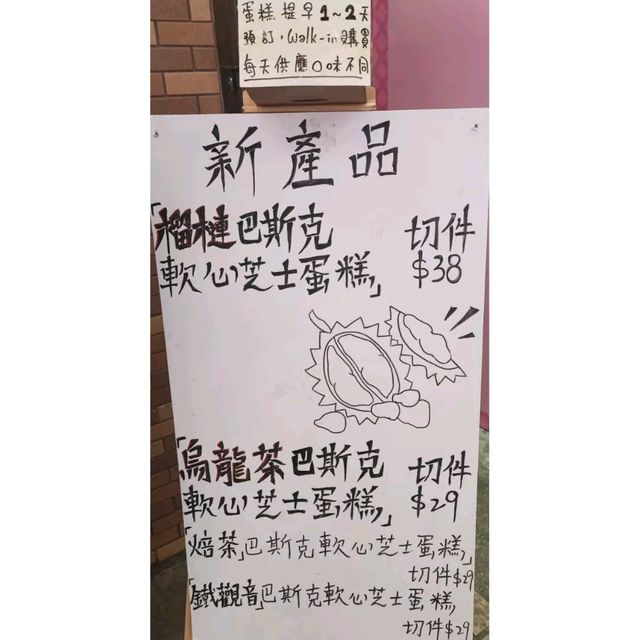 蛋糕提早1~2天
預訂，Walk-in購買
每天供應口味不同
新產品
「榴槤巴斯克 切件
軟心芝士蛋糕」 $38
「烏龍茶巴斯克 切件
軟心芝士蛋糕」 $29
「焙茶」巴斯克軟心芝士蛋糕,
切件$29
「鐵觀音」巴斯克軟心芝士蛋糕,
切件$29